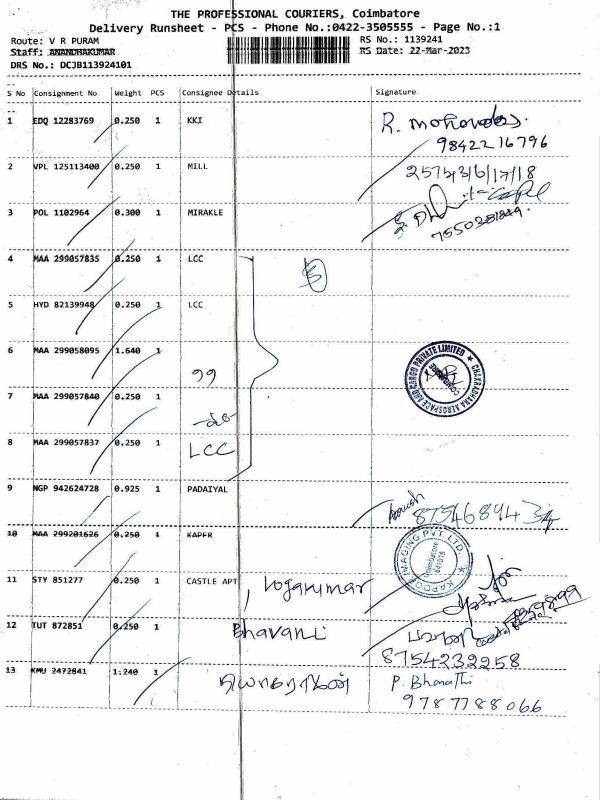 THE PROFESSIONAL COURIERS, Coimbatore
Delivery Runsheet - PCS - Phone No.:0422-3505555 - Page No.:1
Route: V R PURAM RS No.: 1139241
Staff: ANANDHAKUMAR RS Date: 22-Mar-2023
DRS No.: DCJB113924101
S No Consignment No Weight PCS Consignee Details Signature
1 EDQ 12283769 0.250 1 KKI
9842216796
2 VPL 125113400 0.250 1 MILL
3 POL 1102964 0.300 1 MIRAKLE
4 MAA 299057835 0.250 1 LCC
5 HYD 82139948 0.250 1 LCC
6 MAA 299058095 1.640 1
CHAKRADHARA AEROSPACE AND CARGO PRIVATE LIMITED
COIMBATORE
7 MAA 299057840 0.250 1
8 MAA 299057837 0.250 1 LCC
9 NGP 942624728 0.925 1 PADAIYAL
10 MAA 299201626 0.250 1 KAPER
KAPOOR IMAGING PVT LTD
Coimbatore
641015
11 STY 851277 0.250 1 CASTLE APT, Logakumar
12 TUT 872851 0.250 1 Bhavani
8754232258
13 KMU 2472841 1.240 1 P. Bharathi
9787788066